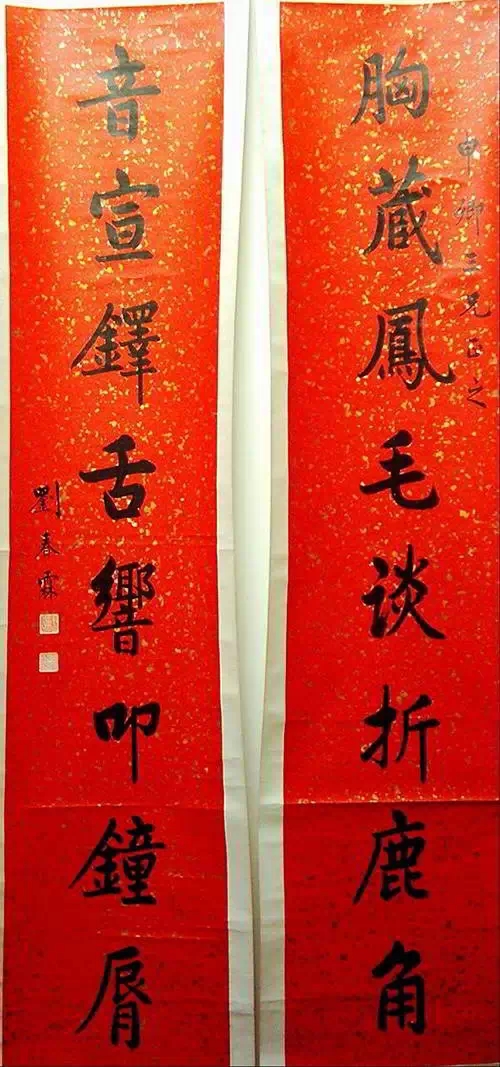 胸藏鳳毛谈折鹿角
申卿三兄正之
音宣鐸舌響叩鐘脣
劉春霖